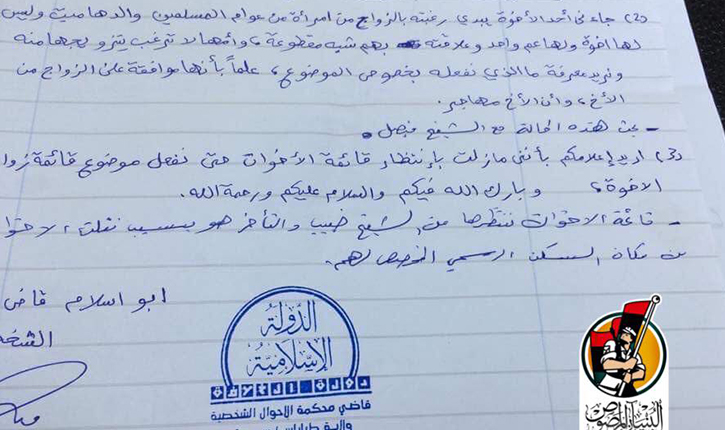 (2) جاءني أحد الأخوة يبدي رغبته بالزواج من امرأة من عوام المسلمين والدها ميت وليس
لها اخوة ولها عم واحد وعلاقته بهم شبه مقطوعة، وأمها لا ترغب بتزويجها منه
ونريد معرفة ما الذي نفعله بخصوص الموضوع، علماً بأنها موافقة على الزواج من
الأخ، وأن الأخ مهاجر.
- بحث هذه الحالة مع الشيخ فيصل.
(3) اريد إعلامكم بأنني مازلت بإنتظار قائمة الأخوات حتى نفعل موضوع قائمة زواج
الاخوة، وبارك الله فيكم والسلام عليكم ورحمة الله.
- قائمة الاخوات ننتظرها من الشيخ والتأخر هو بسبب الاخوات
من مكان السكن الرسمي المخصص لهم.
ابو اسلام قاضي
الدولة
الإسلامية
قاضي محكمة الأحوال الشخصية
ولاية طرابلس
البنيان المرصوص